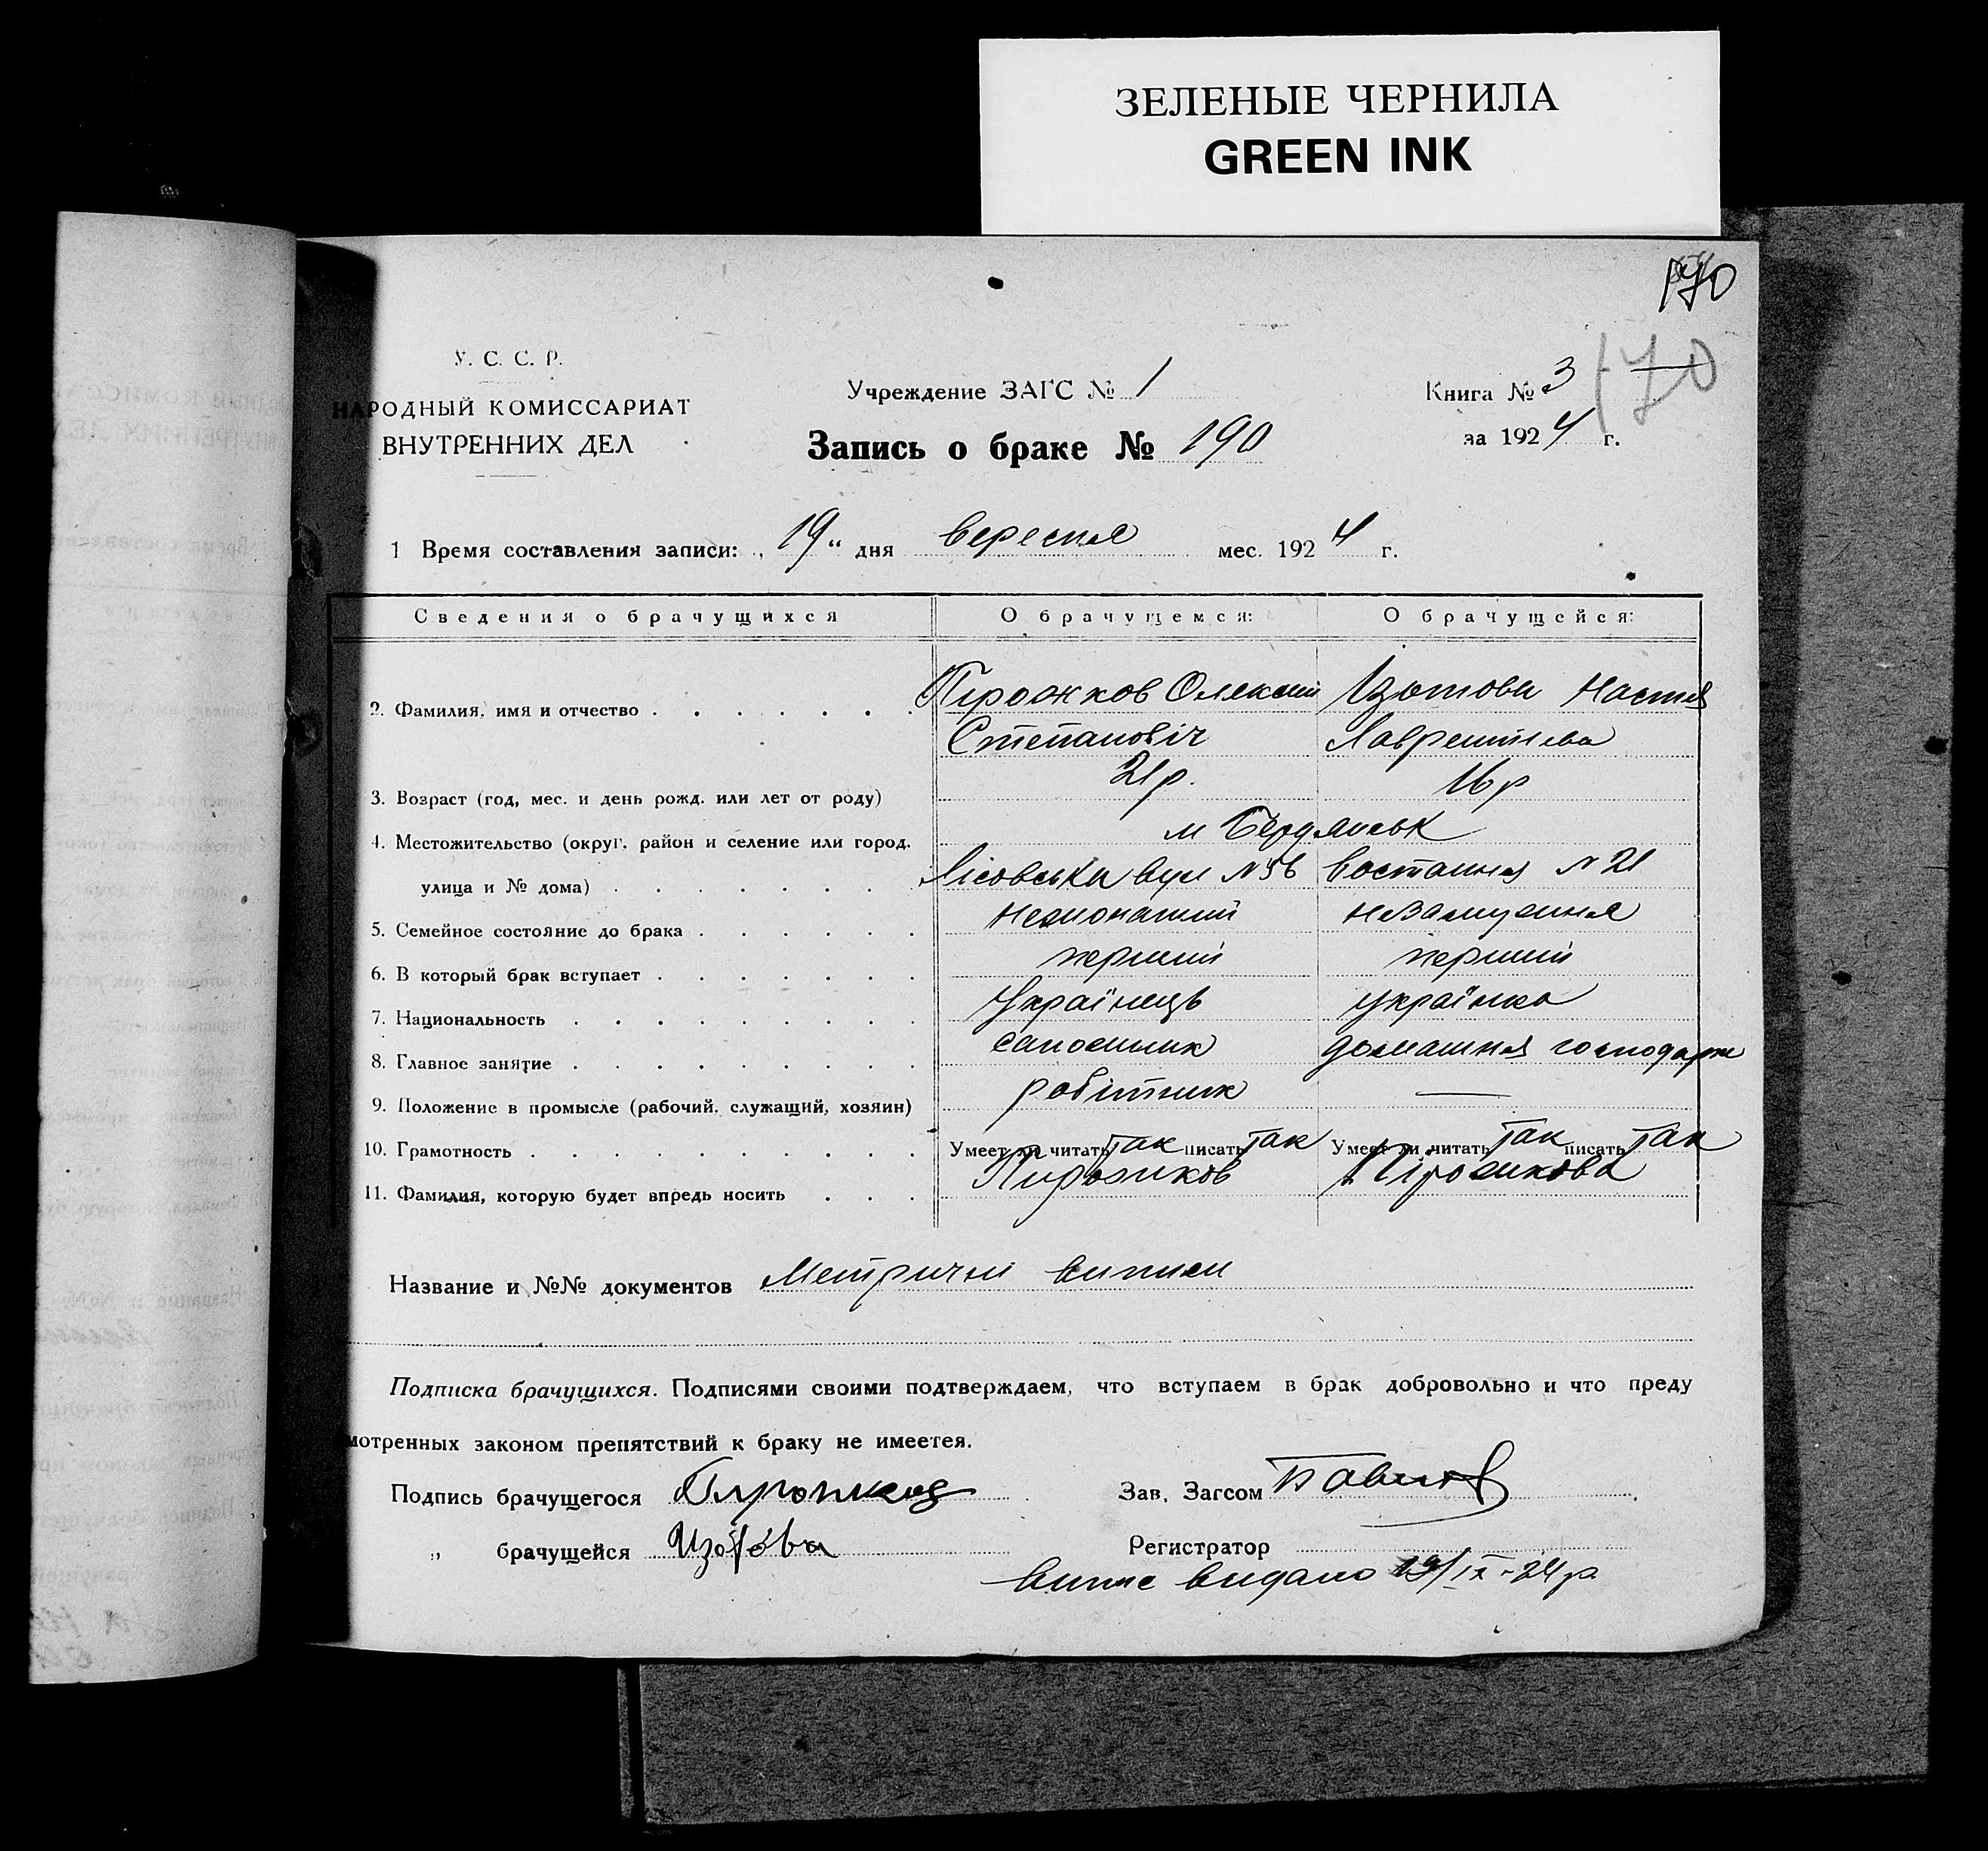 ЗЕЛЕНЫЕ ЧЕРНИЛА
GREEN INK
170
170
У. С. С. Р.
НАРОДНЫЙ КОМИССАРИАТ
ВНУТРЕННИХ ДЕЛ
Учреждение ЗАГС № 1
Книга № 3
Запись о браке № 190
за 1924 г.
1 Время составления записи: „19“ дня вересня мес. 1924 г.
Сведения о брачущихся О брачущемся: О брачущейся:
2. Фамилия, имя и отчество Пірожков Олексий Ізотова Настя
Степановіч Лаврентіева
3. Возраст (год, мес. и день рожд. или лет от роду) 21 р. 16 р
4. Местожительство (округ, район и селение или город, м Бердянськ
улица и № дома) Лісовська вул № 56 Востання № 21
5. Семейное состояние до брака нежонатий незамужня
6. В который брак вступает перший перший
7. Национальность Українець українка
8. Главное занятие сапожник домашня господарк
9. Положение в промысле (рабочий, служащий, хозяин) робітник —
10. Грамотность Умеет ли читать так писать так Умеет ли читать так писать так
11. Фамилия, которую будет впредь носить Пирожков Пірожкова
Название и №№ документов Метричні виписи
Подписка брачущихся. Подписями своими подтверждаем, что вступаем в брак добровольно и что преду
мотренных законом препятствий к браку не имеетея.
Подпись брачущегося Пирожков Зав. Загсом
„ брачущейся Изотова Регистратор
видано 19/IX-24 р